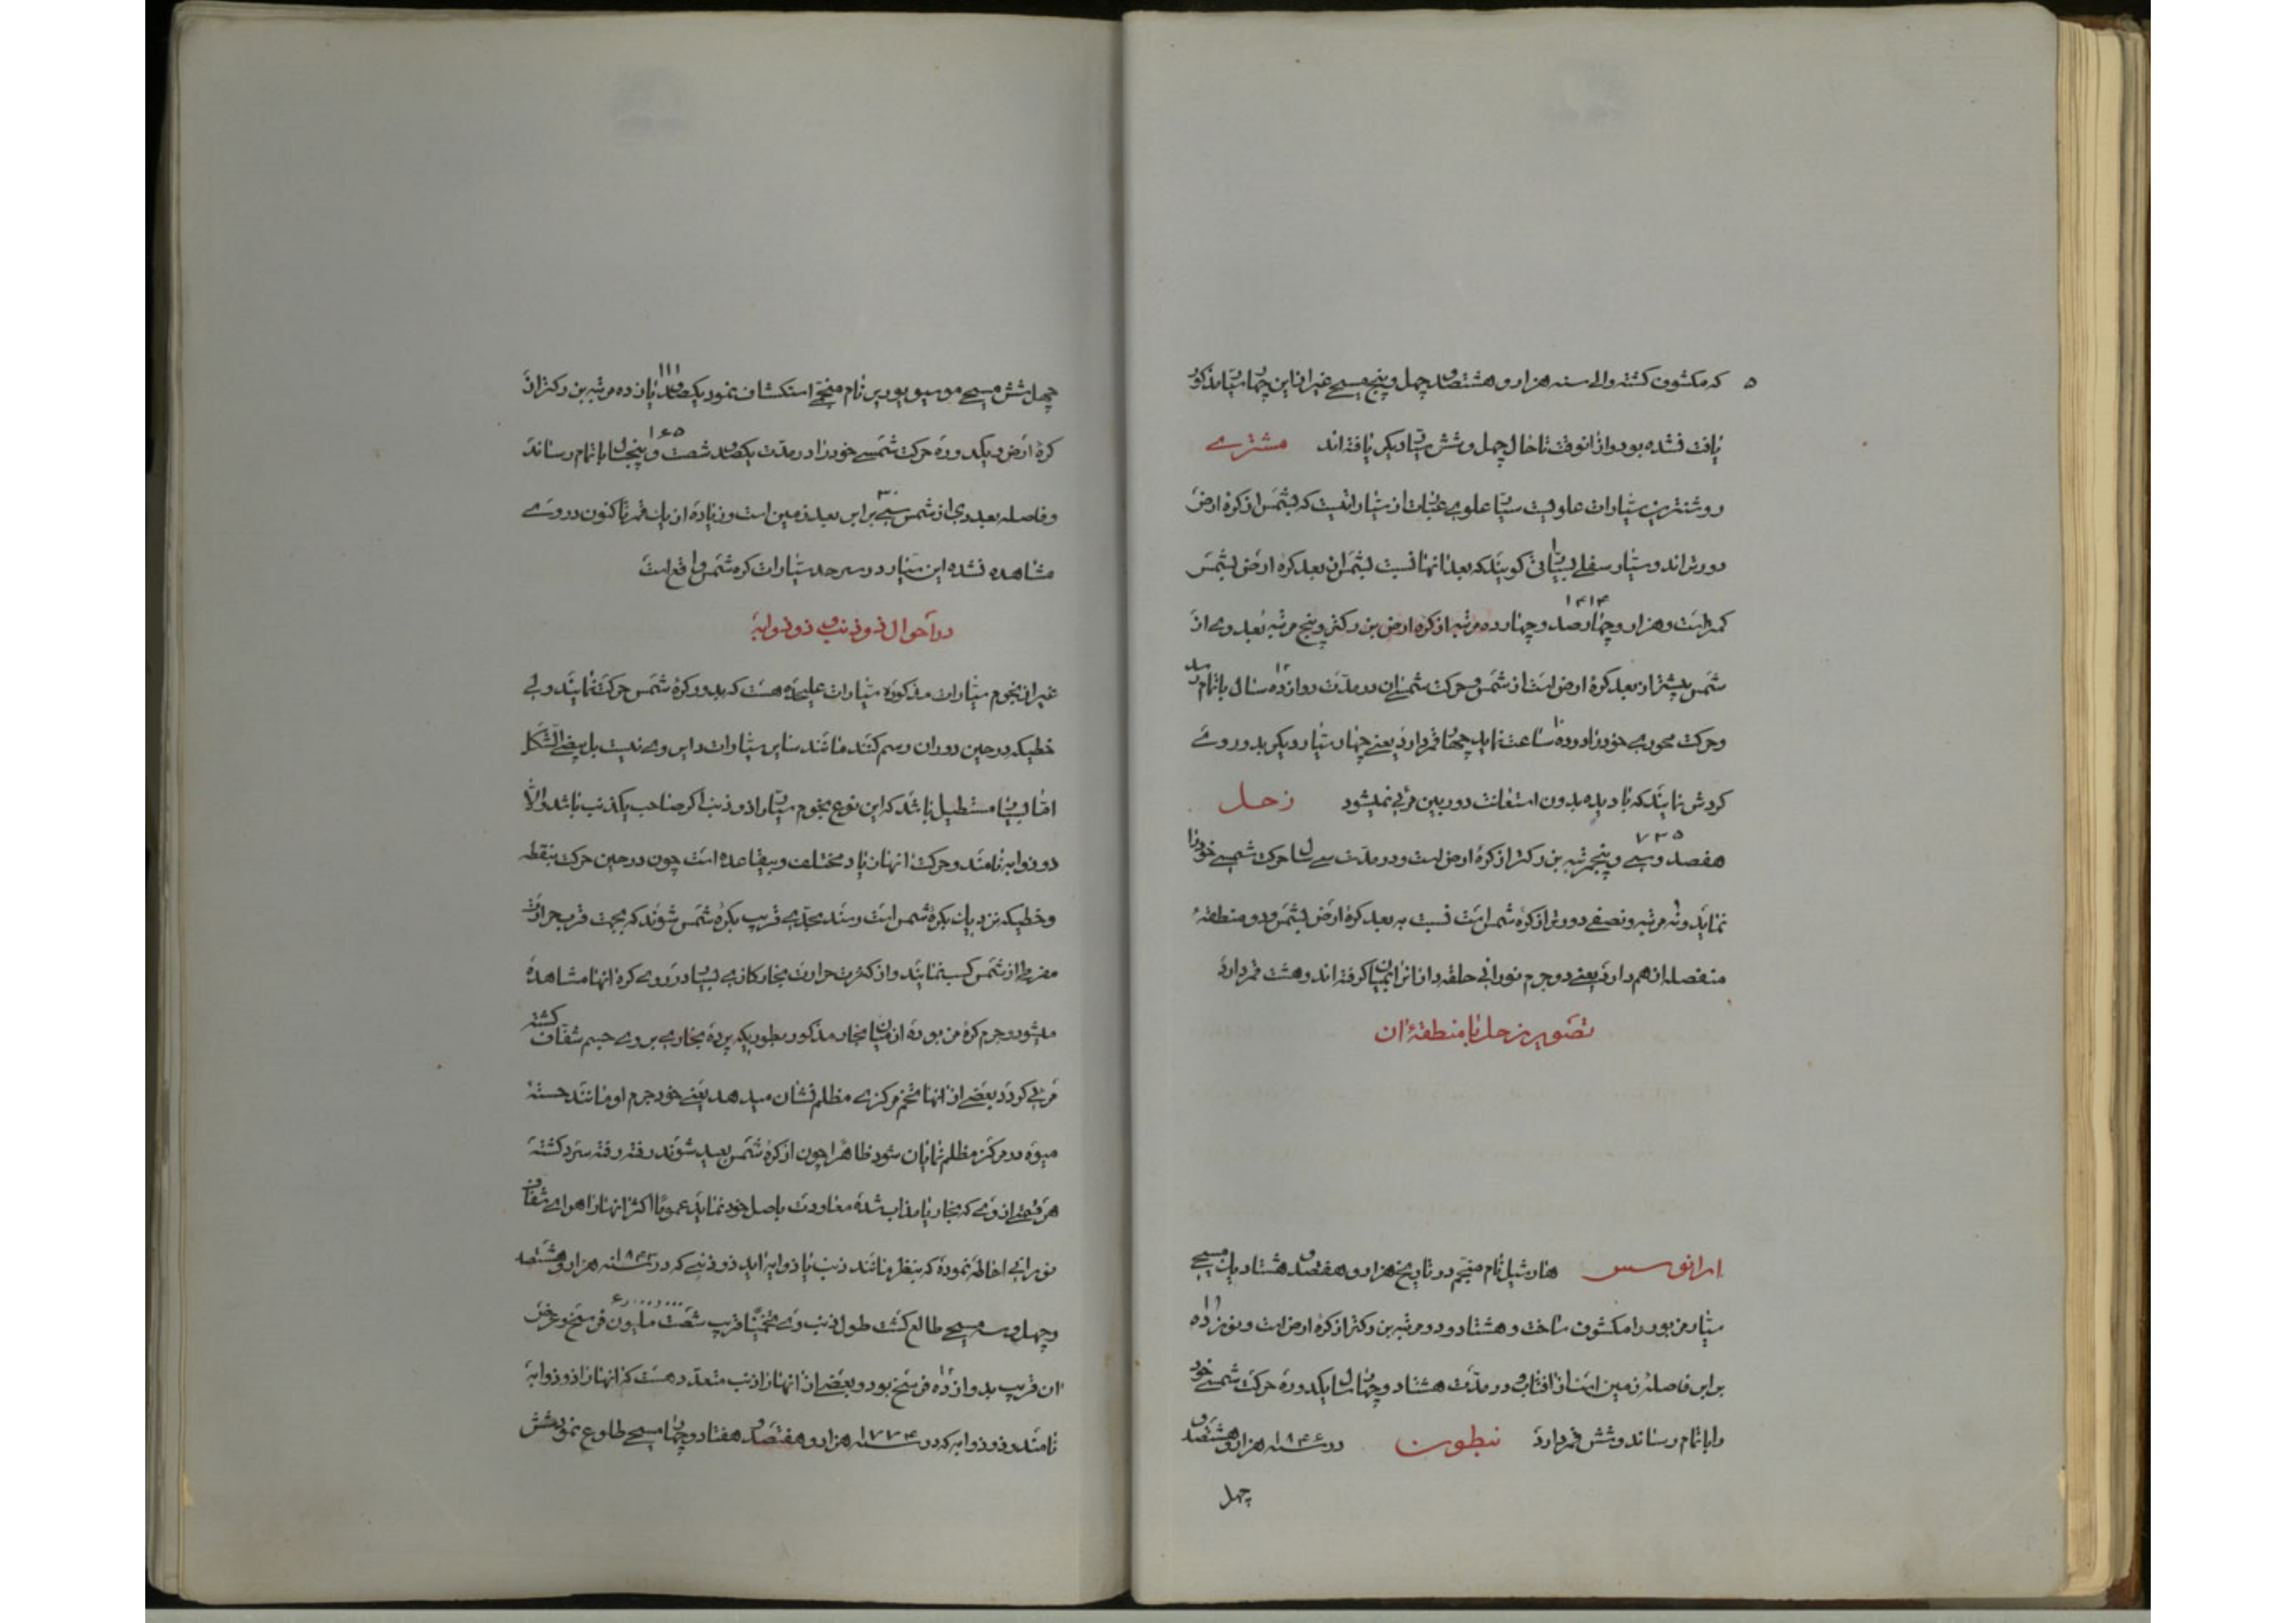 که مکشوف گشته و الی سنه هزار و هشتصد و چهل و پنج مسیحی غیر از این چهار سیار مذکور
یافت نشده بود و از آنوقت تا حال چهل و شش سیار دیگر یافته اند مشتری
روشنترین سیارات علویست سیار علوی عبارت از سیاراتیست که بشمس از کره ارض
دورتراند و سیار سفلی بسیاراتی گویند که بعد آنها نسبت بشمس از بعد کره ارض بشمس
۱۴۱۴
کمتر است و هزار و چهارصد و چهارده مرتبه از کره ارض بزرگتر و پنج مرتبه بعد وی از
شمس بیشتر از بعد کره ارض است از شمس و حرکت شمسی آن در مدت ۱۲ دوازده سال باتمام رسد
و حرکت محوری خود را در ده ۱۰ ساعت نماید چهار قمر دارد یعنی چهار سیار دیگر بدور وی
گردش نمایند که با دیده بدون استعانت دوربین مرئی نمیشود زحل
۷۳۵
هفصد و سی و پنج مرتبه بزرگتر از کره ارض است و در مدت سی سال حرکت شمسی خود را
نماید و نه مرتبه و نصفی دورتر از کره شمس است نسبت به بعد کره ارض بشمس و دو منطقه
منفصله از هم دارد یعنی دو جرم نورانی حلقه وار آنرا بمیان گرفته اند و هشت قمر دارد
تصویر زحل با منطقه آن
اورانوس هارشیل نام منجم در تاریخ هزار و هفتصد و هشتاد و یک مسیحی
سیار مزبور را مکشوف ساخت و هشتاد و دو مرتبه بزرگتر از کره ارض است و نوزده ۱۹
برابر فاصله زمین است از آفتاب و در مدت هشتاد و چهار سال یکدوره حرکت شمسی خود
را باتمام رساند و شش قمر دارد نبطون در سنه ۱۸۴۶ هزار و هشتصد و
چهل
چهل شش مسیحی موسیو لوریر نام منجمی استکشاف نمود یکصد و یازده ۱۱۱ مرتبه بزرگتر از
کره ارض و یکدوره حرکت شمسی خود را در مدت یکصد و شصت و پنج ۱۶۵ سال باتمام رساند
و فاصله بعد وی از شمس سی ۳۰ برابر بعد زمین است و زیاده از یک قمر تا کنون در وی
مشاهده نشده این سیار در سرحد سیارات کره شمس واقع است
در احوال ذو ذنب و ذو ذوابه
غیر از نجوم سیارات مذکوره سیارات علیحده هست که بدور کره شمس حرکت نمایند ولی
خطیکه در حین دوران رسم کنند مانند سایر سیارات دایروی نیست بل بیضی الشکل
اما بسیار مستطیل باشد که این نوع نجوم سیار را ذو ذنب اگر صاحب یک ذنب باشد و الا
ذو ذوابه نامند و حرکت آنها زیاد مختلف و بیقاعده است چون در حین حرکت بنقطه
و خطیکه نزدیک بکره شمس است رسند بحدی قریب بکره شمس شوند که بجهت قرب حرارت
مفرط از شمس کسب نمایند و از کثرت حرارت بخار کازی بسیار در روی کره آنها مشاهده
میشود و جرم کره مزبوره از میان بخار مذکور بطوریکه پرده بخاری بروی جسم شفاف کشته
مرئی گردد بعضی از آنها تخم مرکزی مظلم نشان میدهد یعنی خود جرم او مانند هسته
میوه در مرکز مظلم نمایان شود ظاهرا چون از کره شمس بعید شوند رفته رفته سرد گشته
هر قسمی از وی که بخار یا مذاب شده معاودت باصل خود نماید عموما اکثر آنها را هوای شفاف
نورانی احاطه نموده که بنظر مانند ذنب یا ذوابه آید ذو ذنبی که در سنه ۱۸۴۳ هزار و هشتصد
و چهل و سه مسیحی طالع گشت طول ذنب وی تخمینا قریب شصت ملیون ۶۰۰۰۰۰۰۰ فرسخ و عرض
آن قریب بدوازده فرسخ بود و بعضی از آنها را ذنب متعدد هست که آنها را ذو ذوابه
نامند و ذو ذوابه که در سنه ۱۷۷۴ هزار و هفتصد و هفتاد و چهار مسیحی طلوع نمود شش